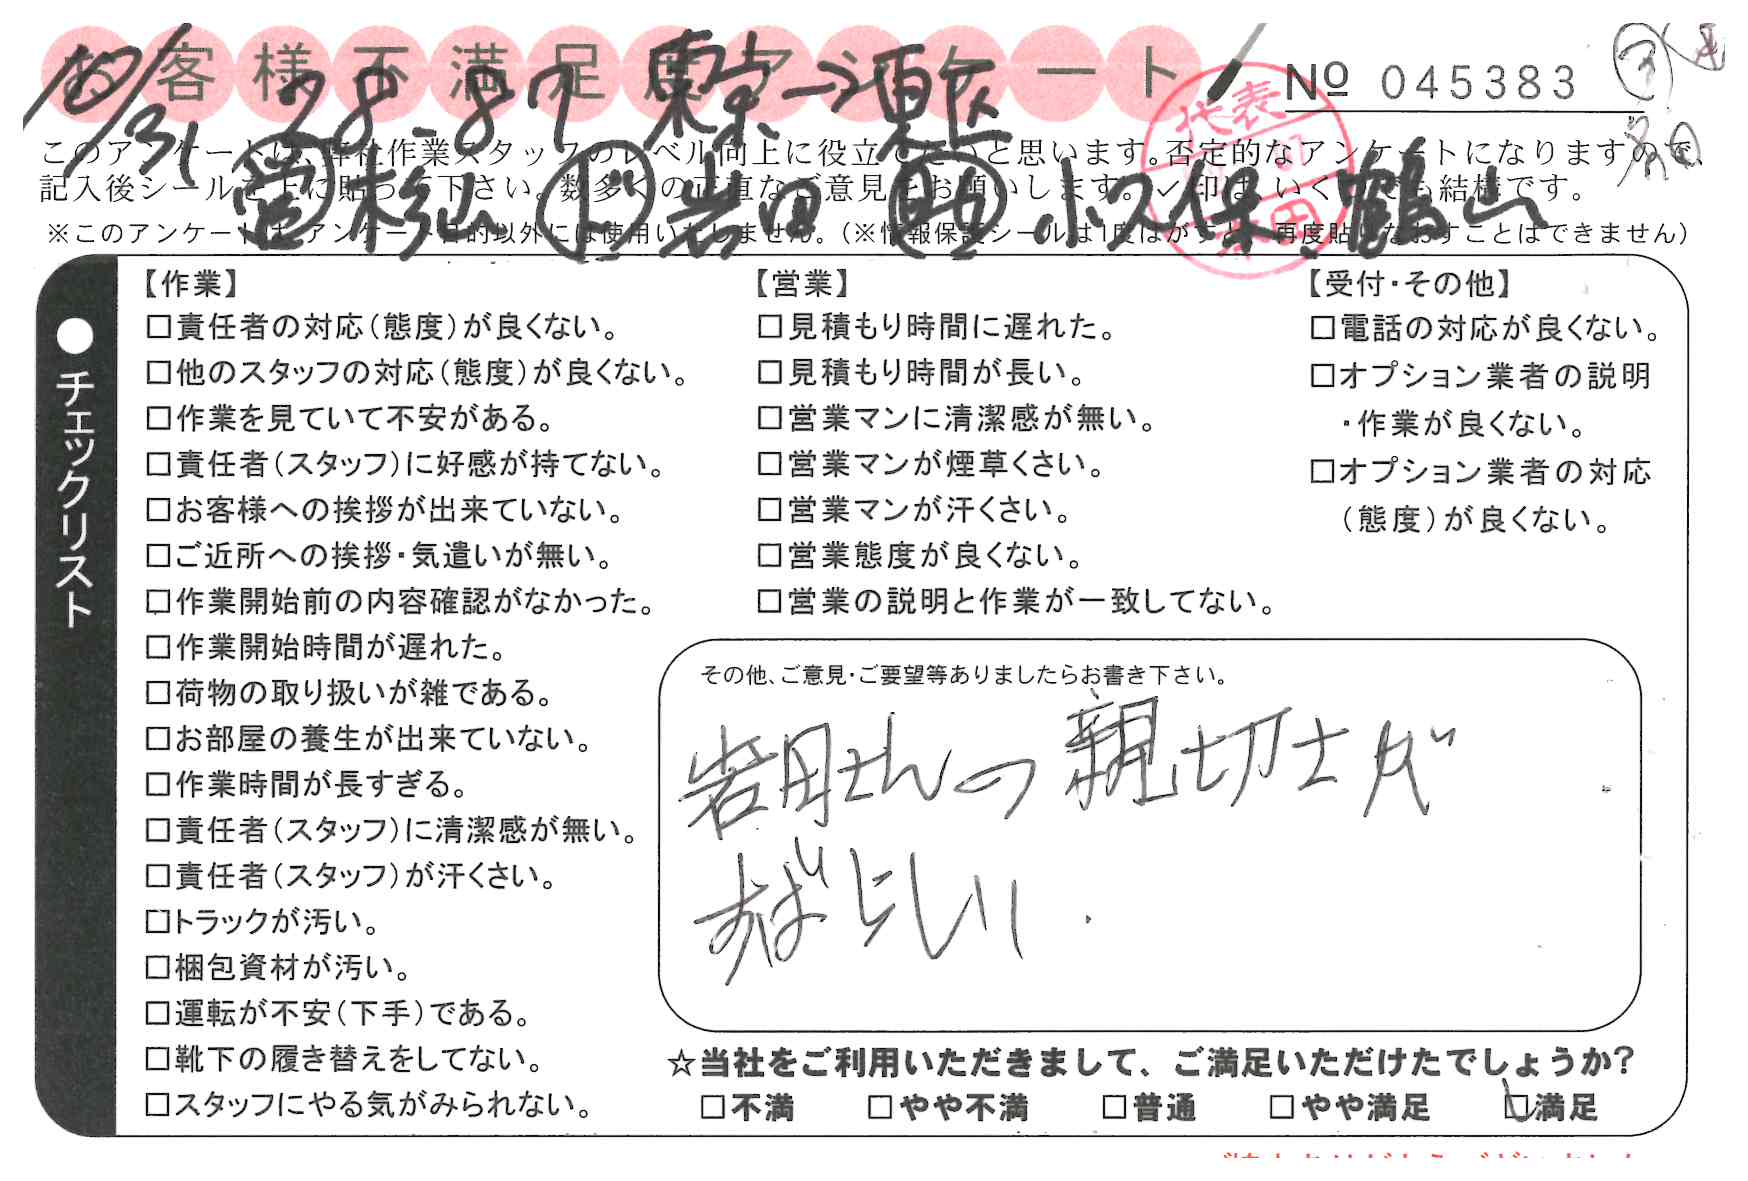 お客様不満足度アンケート
№ 045383
10/31 28-87 東京→東区
このアンケートは、弊社作業スタッフのレベル向上に役立てたいと思います。否定的なアンケートになりますので、
記入後シールを上に貼って下さい。数多くの正直なご意見をお願いします。✓印は、いくつでも結構です。
営 杉山 岩田 小久保 鶴山
代表
※このアンケートは、アンケート目的以外には使用いたしません。（※情報保護シールは1度はがすと、再度貼りなおすことはできません）
●チェックリスト
【作業】
□責任者の対応（態度）が良くない。
□他のスタッフの対応（態度）が良くない。
□作業を見ていて不安がある。
□責任者（スタッフ）に好感が持てない。
□お客様への挨拶が出来ていない。
□ご近所への挨拶・気遣いが無い。
□作業開始前の内容確認がなかった。
□作業開始時間が遅れた。
□荷物の取り扱いが雑である。
□お部屋の養生が出来ていない。
□作業時間が長すぎる。
□責任者（スタッフ）に清潔感が無い。
□責任者（スタッフ）が汗くさい。
□トラックが汚い。
□梱包資材が汚い。
□運転が不安（下手）である。
□靴下の履き替えをしてない。
□スタッフにやる気がみられない。
【営業】
□見積もり時間に遅れた。
□見積もり時間が長い。
□営業マンに清潔感が無い。
□営業マンが煙草くさい。
□営業マンが汗くさい。
□営業態度が良くない。
□営業の説明と作業が一致してない。
【受付・その他】
□電話の対応が良くない。
□オプション業者の説明
・作業が良くない。
□オプション業者の対応
（態度）が良くない。
その他、ご意見・ご要望等ありましたらお書き下さい。
岩田さんの親切さが
すばらしい.
☆当社をご利用いただきまして、ご満足いただけたでしょうか?
□不満 □やや不満 □普通 □やや満足 ☑満足